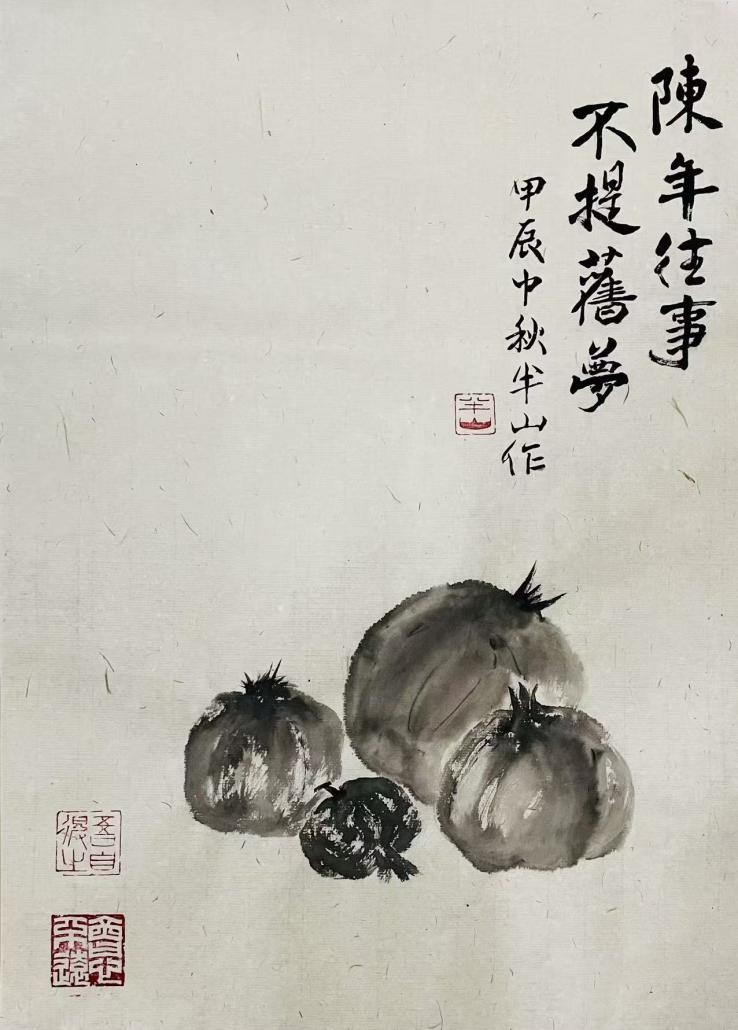 陳年往事
不提舊夢
甲辰中秋半山作
半山